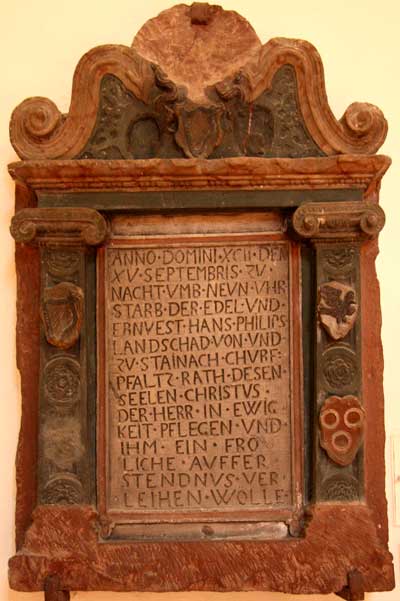 ANNO · DOMINI · XCII · DEN
XV · SEPTEMBRIS · ZV ·
NACHT · VMB · NEVN · VHR
STARB · DER · EDEL · VND
ERNVEST · HANS · PHILIPS
LANDSCHAD · VON · VND
ZV · STAINACH · CHVRF
PFALTZ · RATH · DESEN
SEELEN · CHRISTVS ·
DER · HERR · IN · EWIG
KEIT · PFLEGEN · VND
IHM · EIN · FRO
LICHE · AVFFER
STENDNVS · VER
LEIHEN · WOLLE